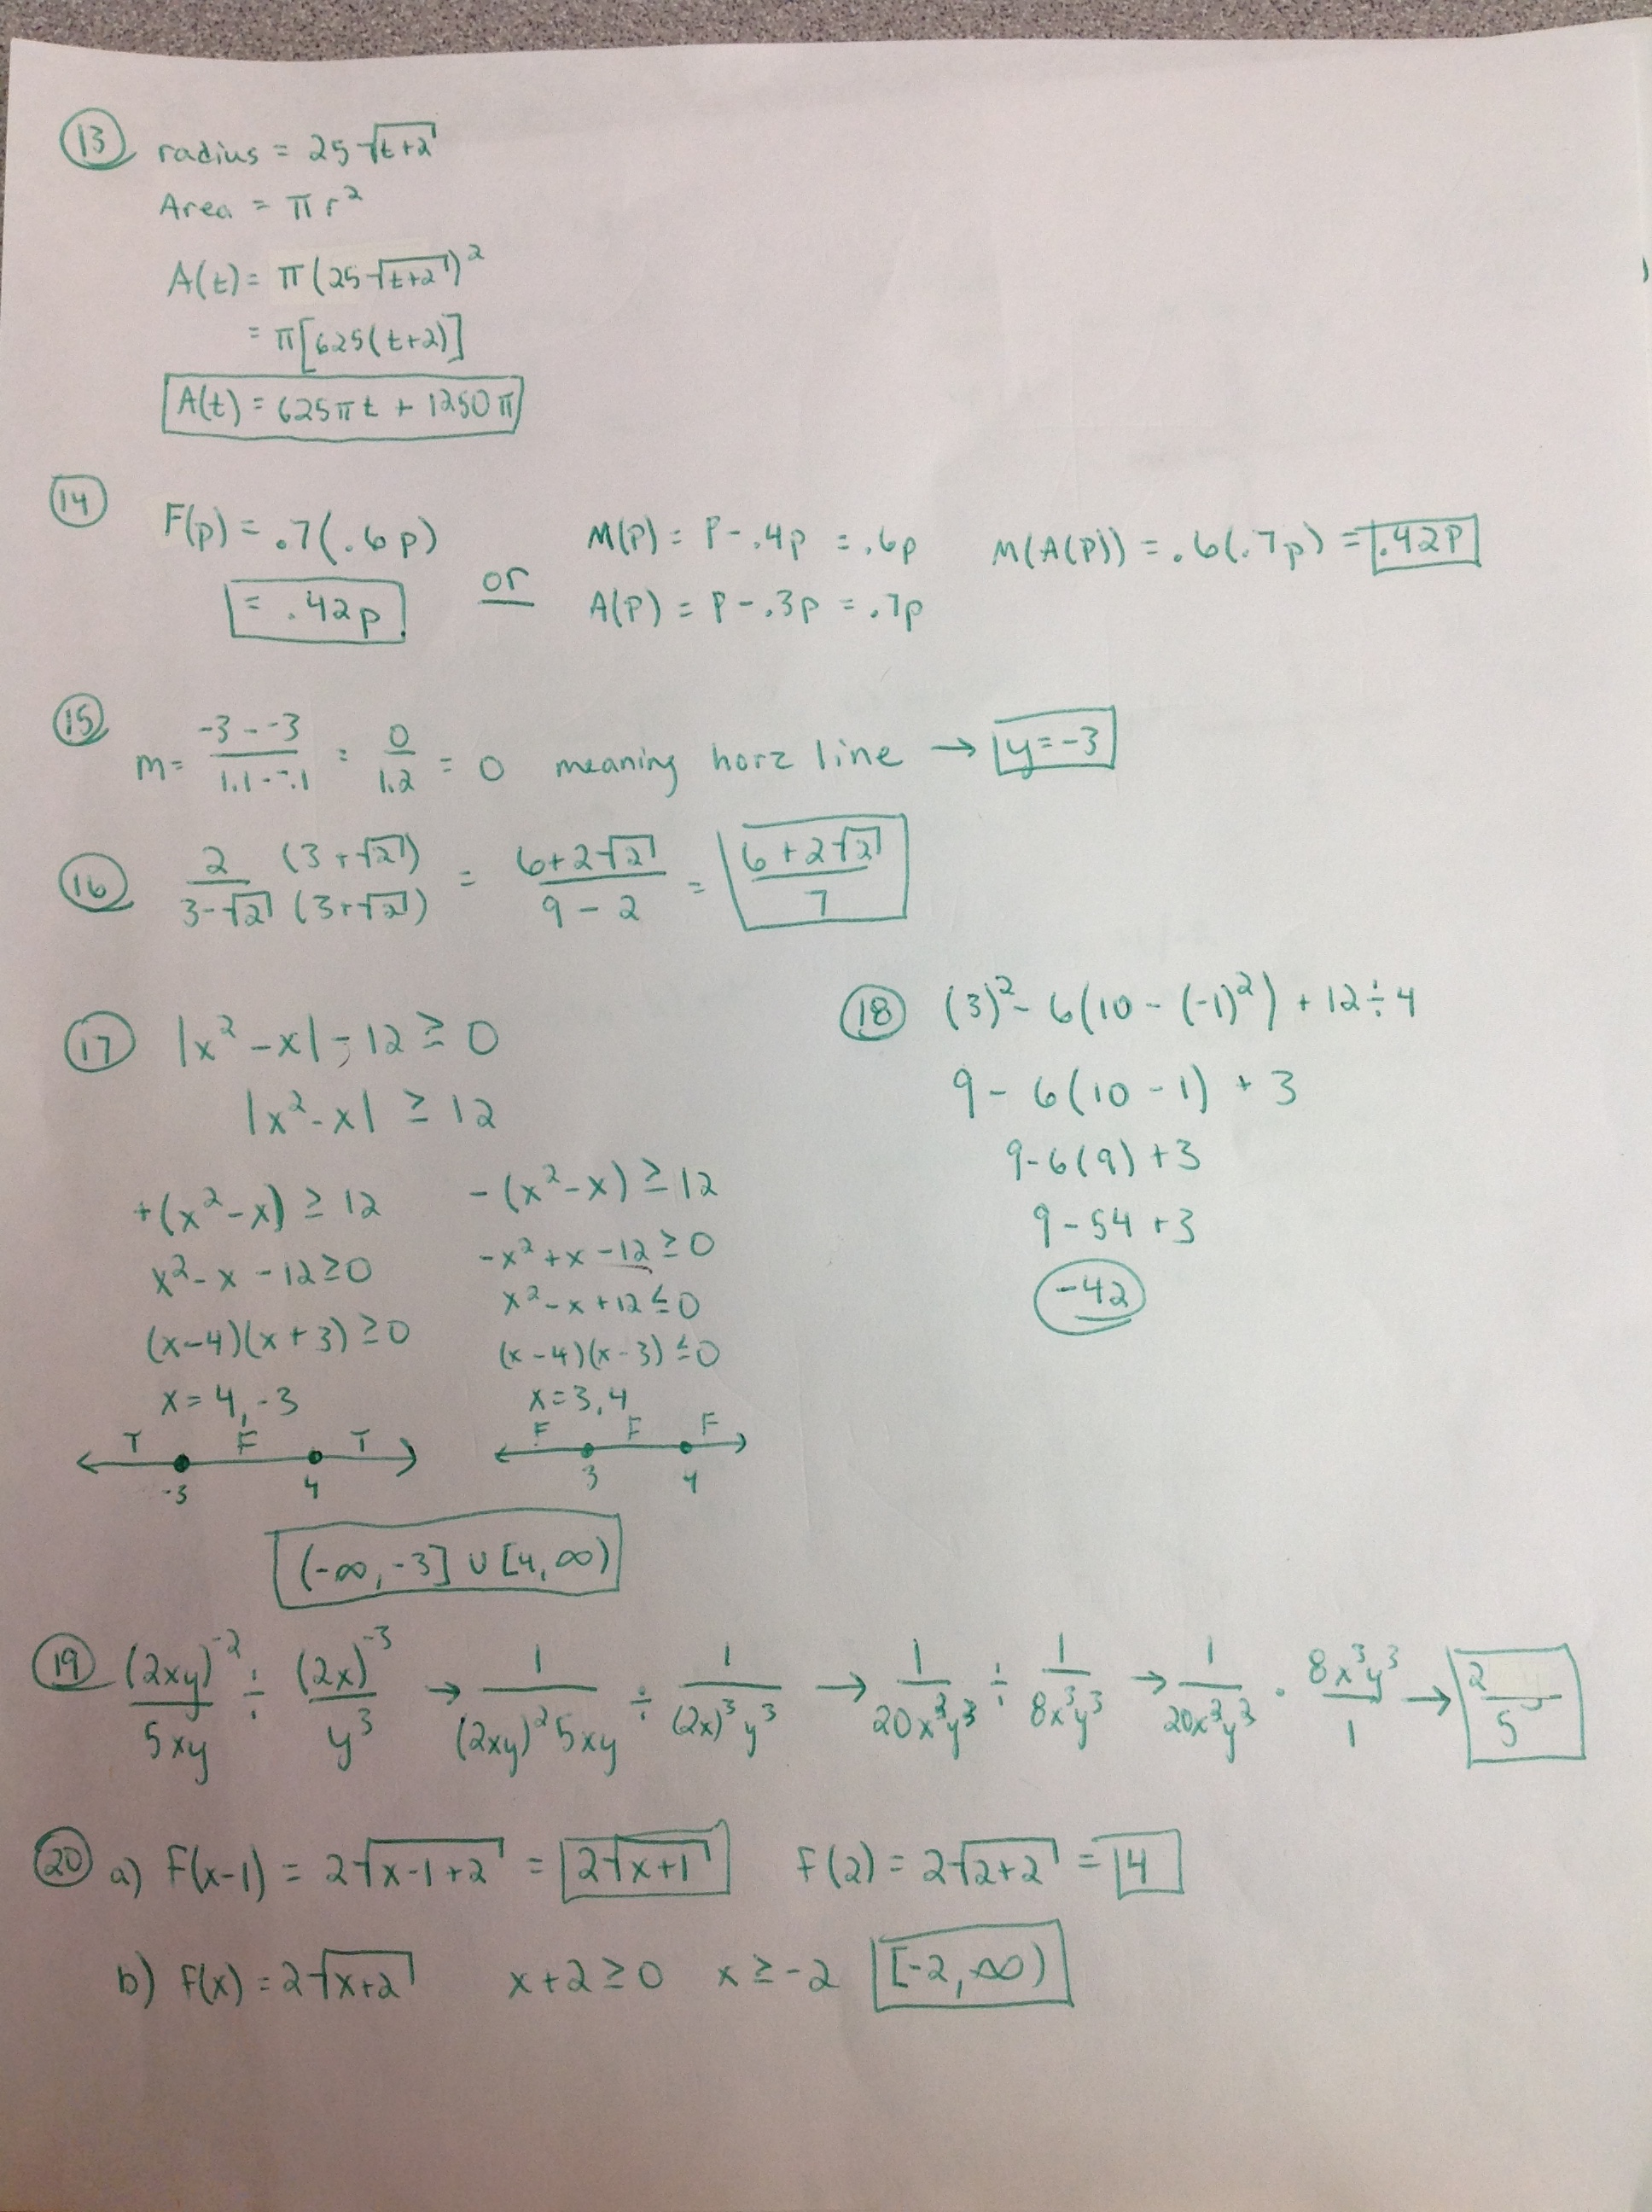 13 radius = 25√(t+2)
Area = πr²
A(t) = π(25√(t+2))²
= π[625(t+2)]
A(t) = 625πt + 1250π
14 F(p) = .7(.6p)
= .42p
or
M(P) = P - .4p = .6p
A(P) = P - .3p = .7p
M(A(P)) = .6(.7p) = .42P
15 m = (-3 - -3)/(1.1 - -.1) = 0/1.2 = 0 meaning horz line → y = -3
16 2/(3-√2) (3+√2)/(3+√2) = (6+2√2)/(9-2) = (6+2√2)/7
17 |x²-x| - 12 ≥ 0
|x²-x| ≥ 12
+(x²-x) ≥ 12
x²-x-12 ≥ 0
(x-4)(x+3) ≥ 0
x = 4, -3
T F T
-3 4
-(x²-x) ≥ 12
-x²+x-12 ≥ 0
x²-x+12 ≤ 0
(x-4)(x-3) ≤ 0
x = 3, 4
F F F
3 4
(-∞, -3] ∪ [4, ∞)
18 (3)² - 6(10 - (-1)²) + 12÷4
9 - 6(10 - 1) + 3
9-6(9)+3
9-54+3
-42
19 (2xy)⁻²/5xy ÷ (2x)⁻³/y³ → 1/(2xy)²5xy ÷ 1/(2x)³y³ → 1/20x³y³ ÷ 1/8x³y³ → 1/20x³y³ · 8x³y³/1 → 2/5
20 a) F(x-1) = 2√(x-1+2) = 2√(x+1) F(2) = 2√(2+2) = 4
b) F(x) = 2√(x+2) x+2 ≥ 0 x ≥ -2 [-2, ∞)